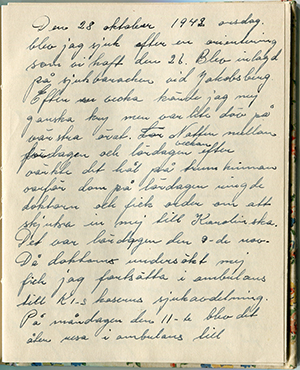 Den 28 oktober 1942 onsdag.
blev jag sjuk efter en orientering
som vi haft den 26. Blev inlagd
på sjukbaracken vid Jakobsberg.
Efter en vecka kände jag mig
ganska kry men var lite döv på
vänstra örat. Natten mellan
fredagen och lördagen veckan efter
värkte det hål på trumhinnan
varför dom på lördagen ringde
doktorn och fick order om att
skjutsa in mej till Karolinska.
Det var lördagen den nov.
Då doktorns undersökt mej
fick jag fortsätta i ambulans
till K1-s kaserns sjukavdelning.
På måndagen den 11-te blev det
åter resa i ambulans till